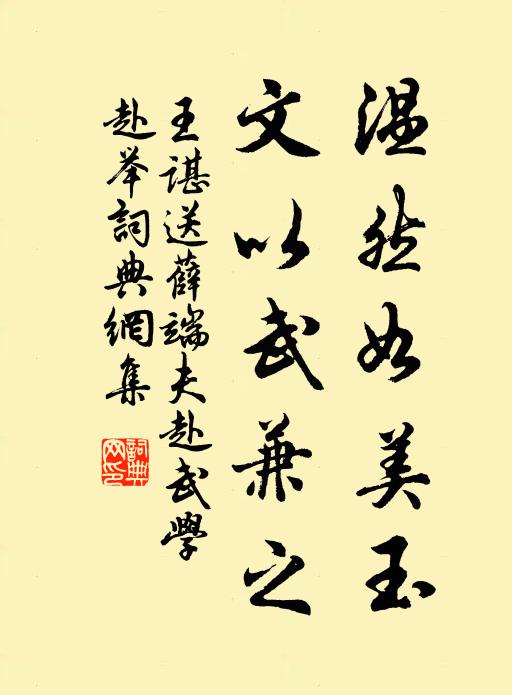 温然如美玉
文以武兼之
王諶送薛端夫赴武學
赴举詞典網集
詞典網印